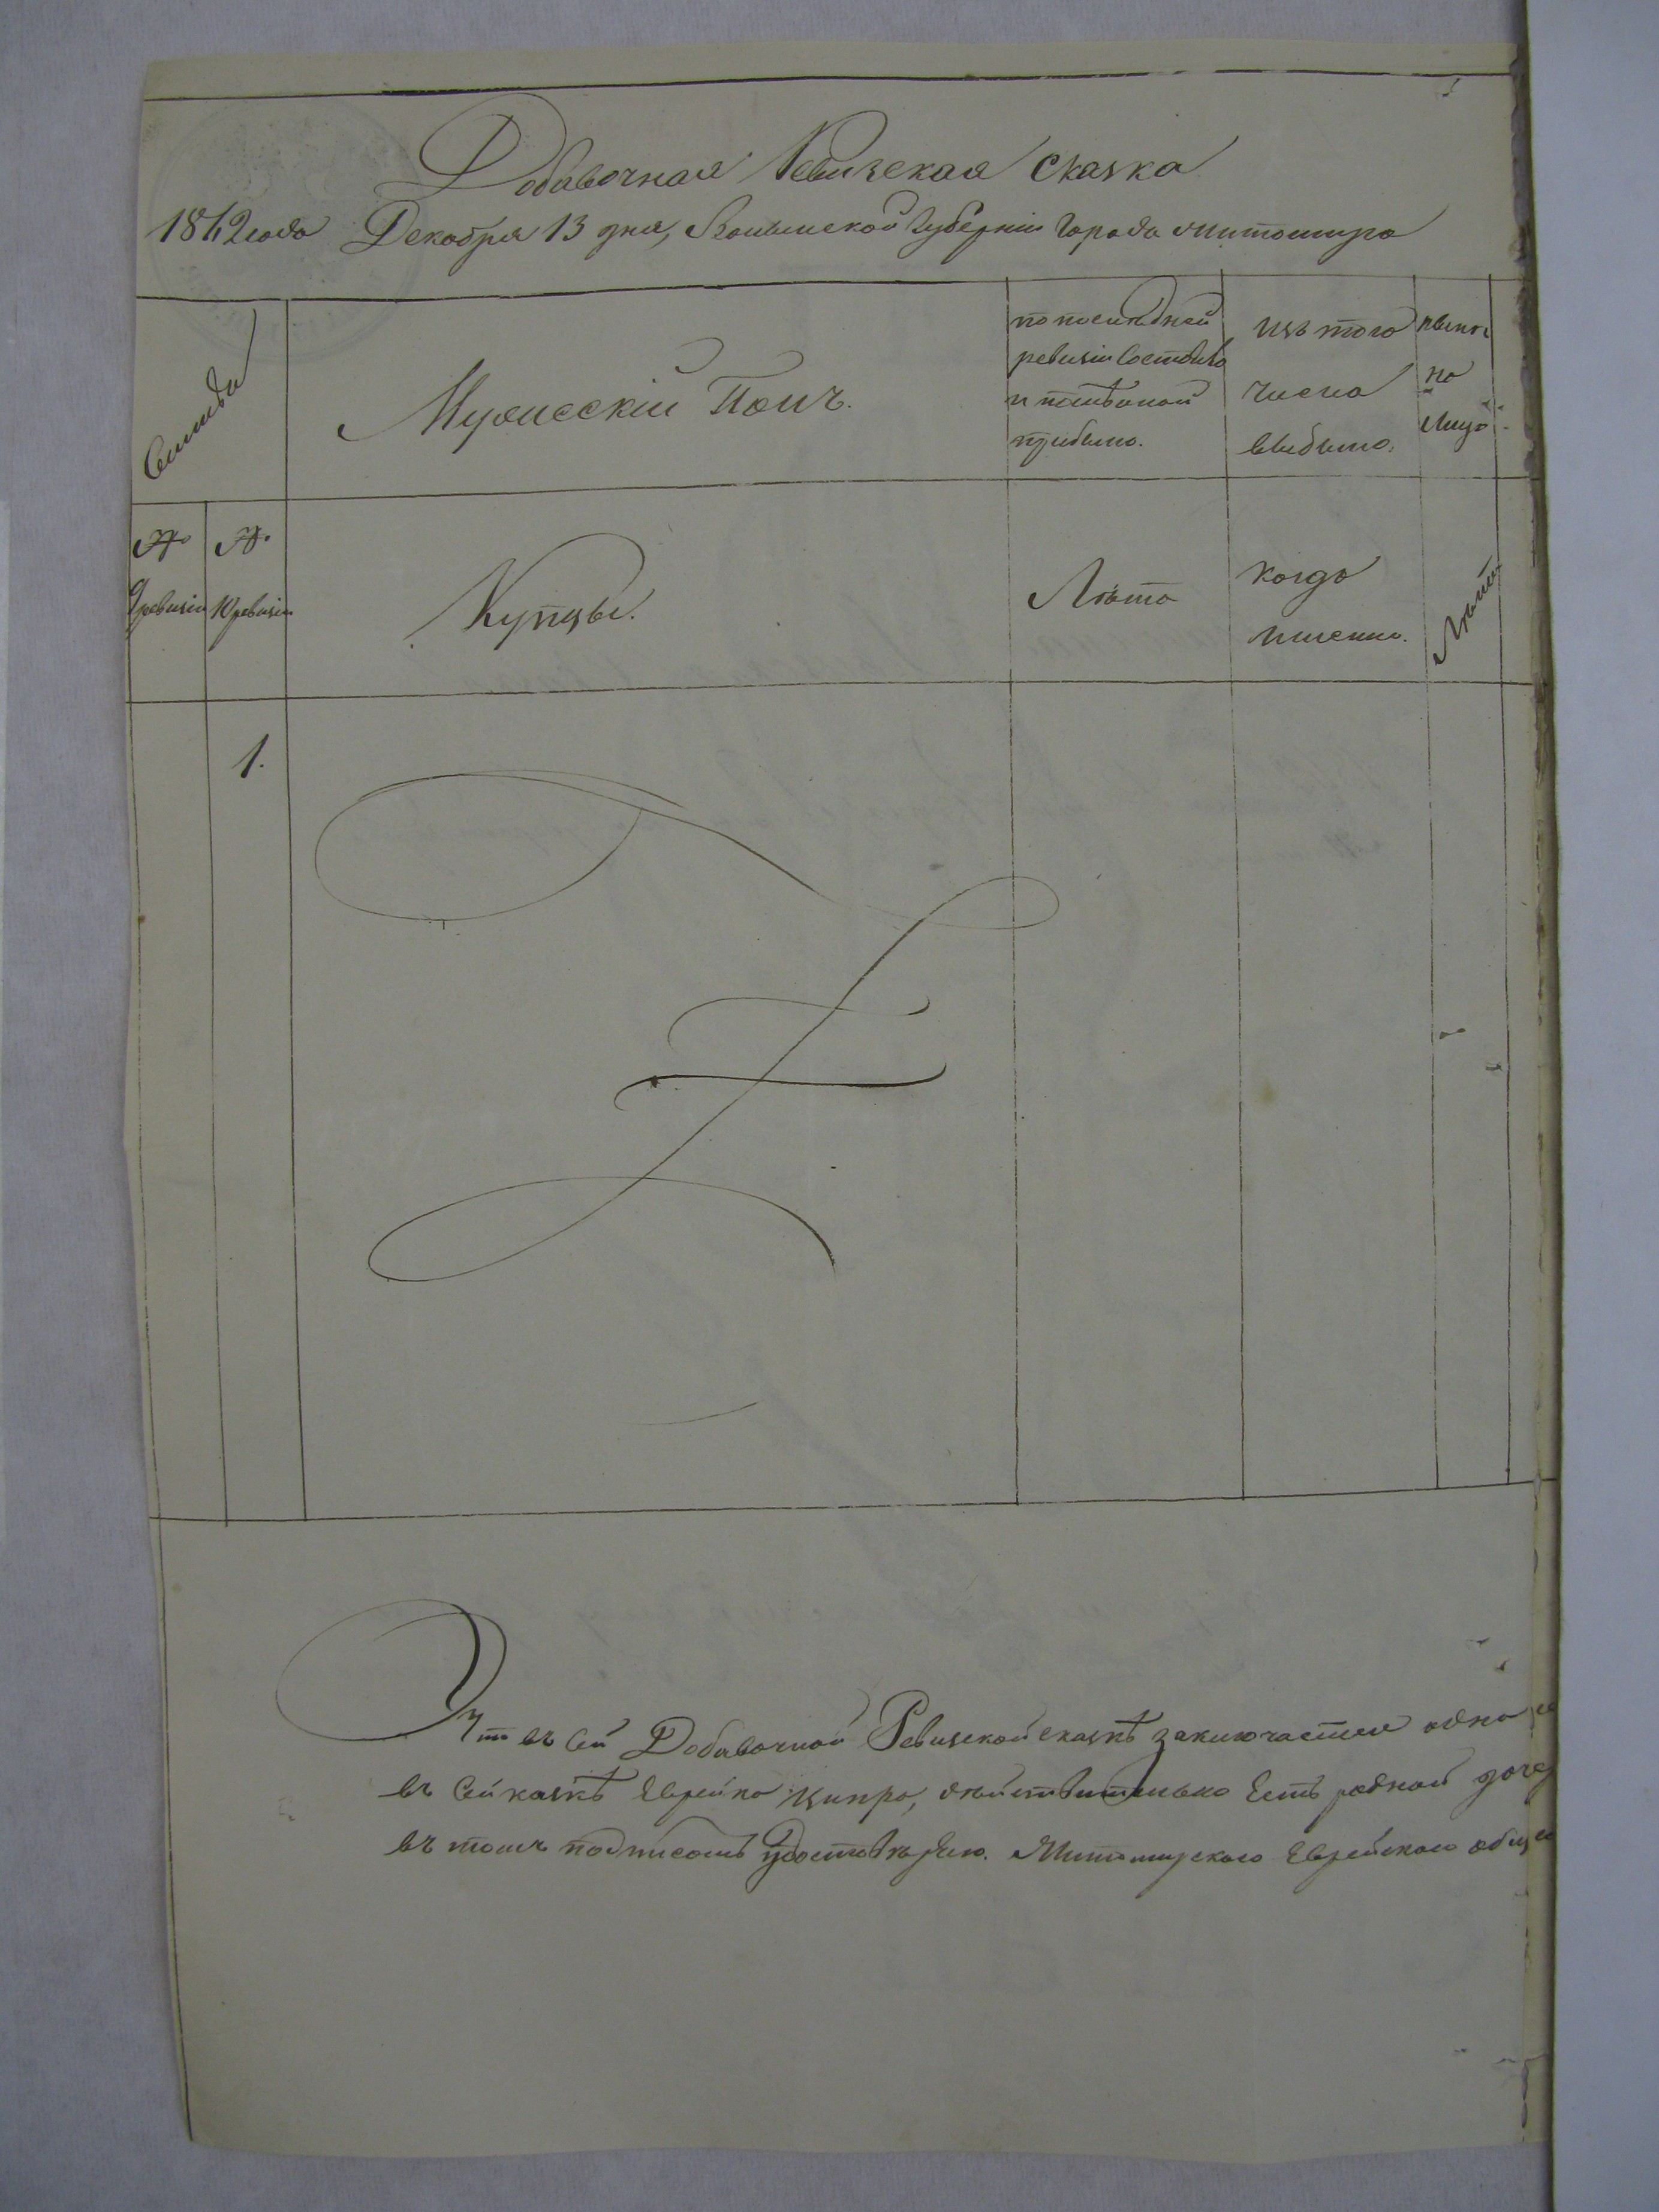 Добавочная Ревизская Сказка
1862 года Декабря 13 дня, Волынской Губерніи Города Житомира
Семьи
Мужескій Полъ.
по послѣдней
ревизіи Состояло
и послѣ оной
прибыло.
Изъ того
числа
выбыло.
нынѣ
на
лицо
№ №
9 ревизіи 10 ревизіи
Купцы.
Лѣта
когда
именно.
Лѣта
1.
Что въ Сей Добавочной Ревизской сказкѣ заключается одна
въ Сей казкѣ Еврейка Ципра, дѣйствительно Есть родной доче
въ томъ подписомъ Удостовѣряю. Житомирского Еврейского обще